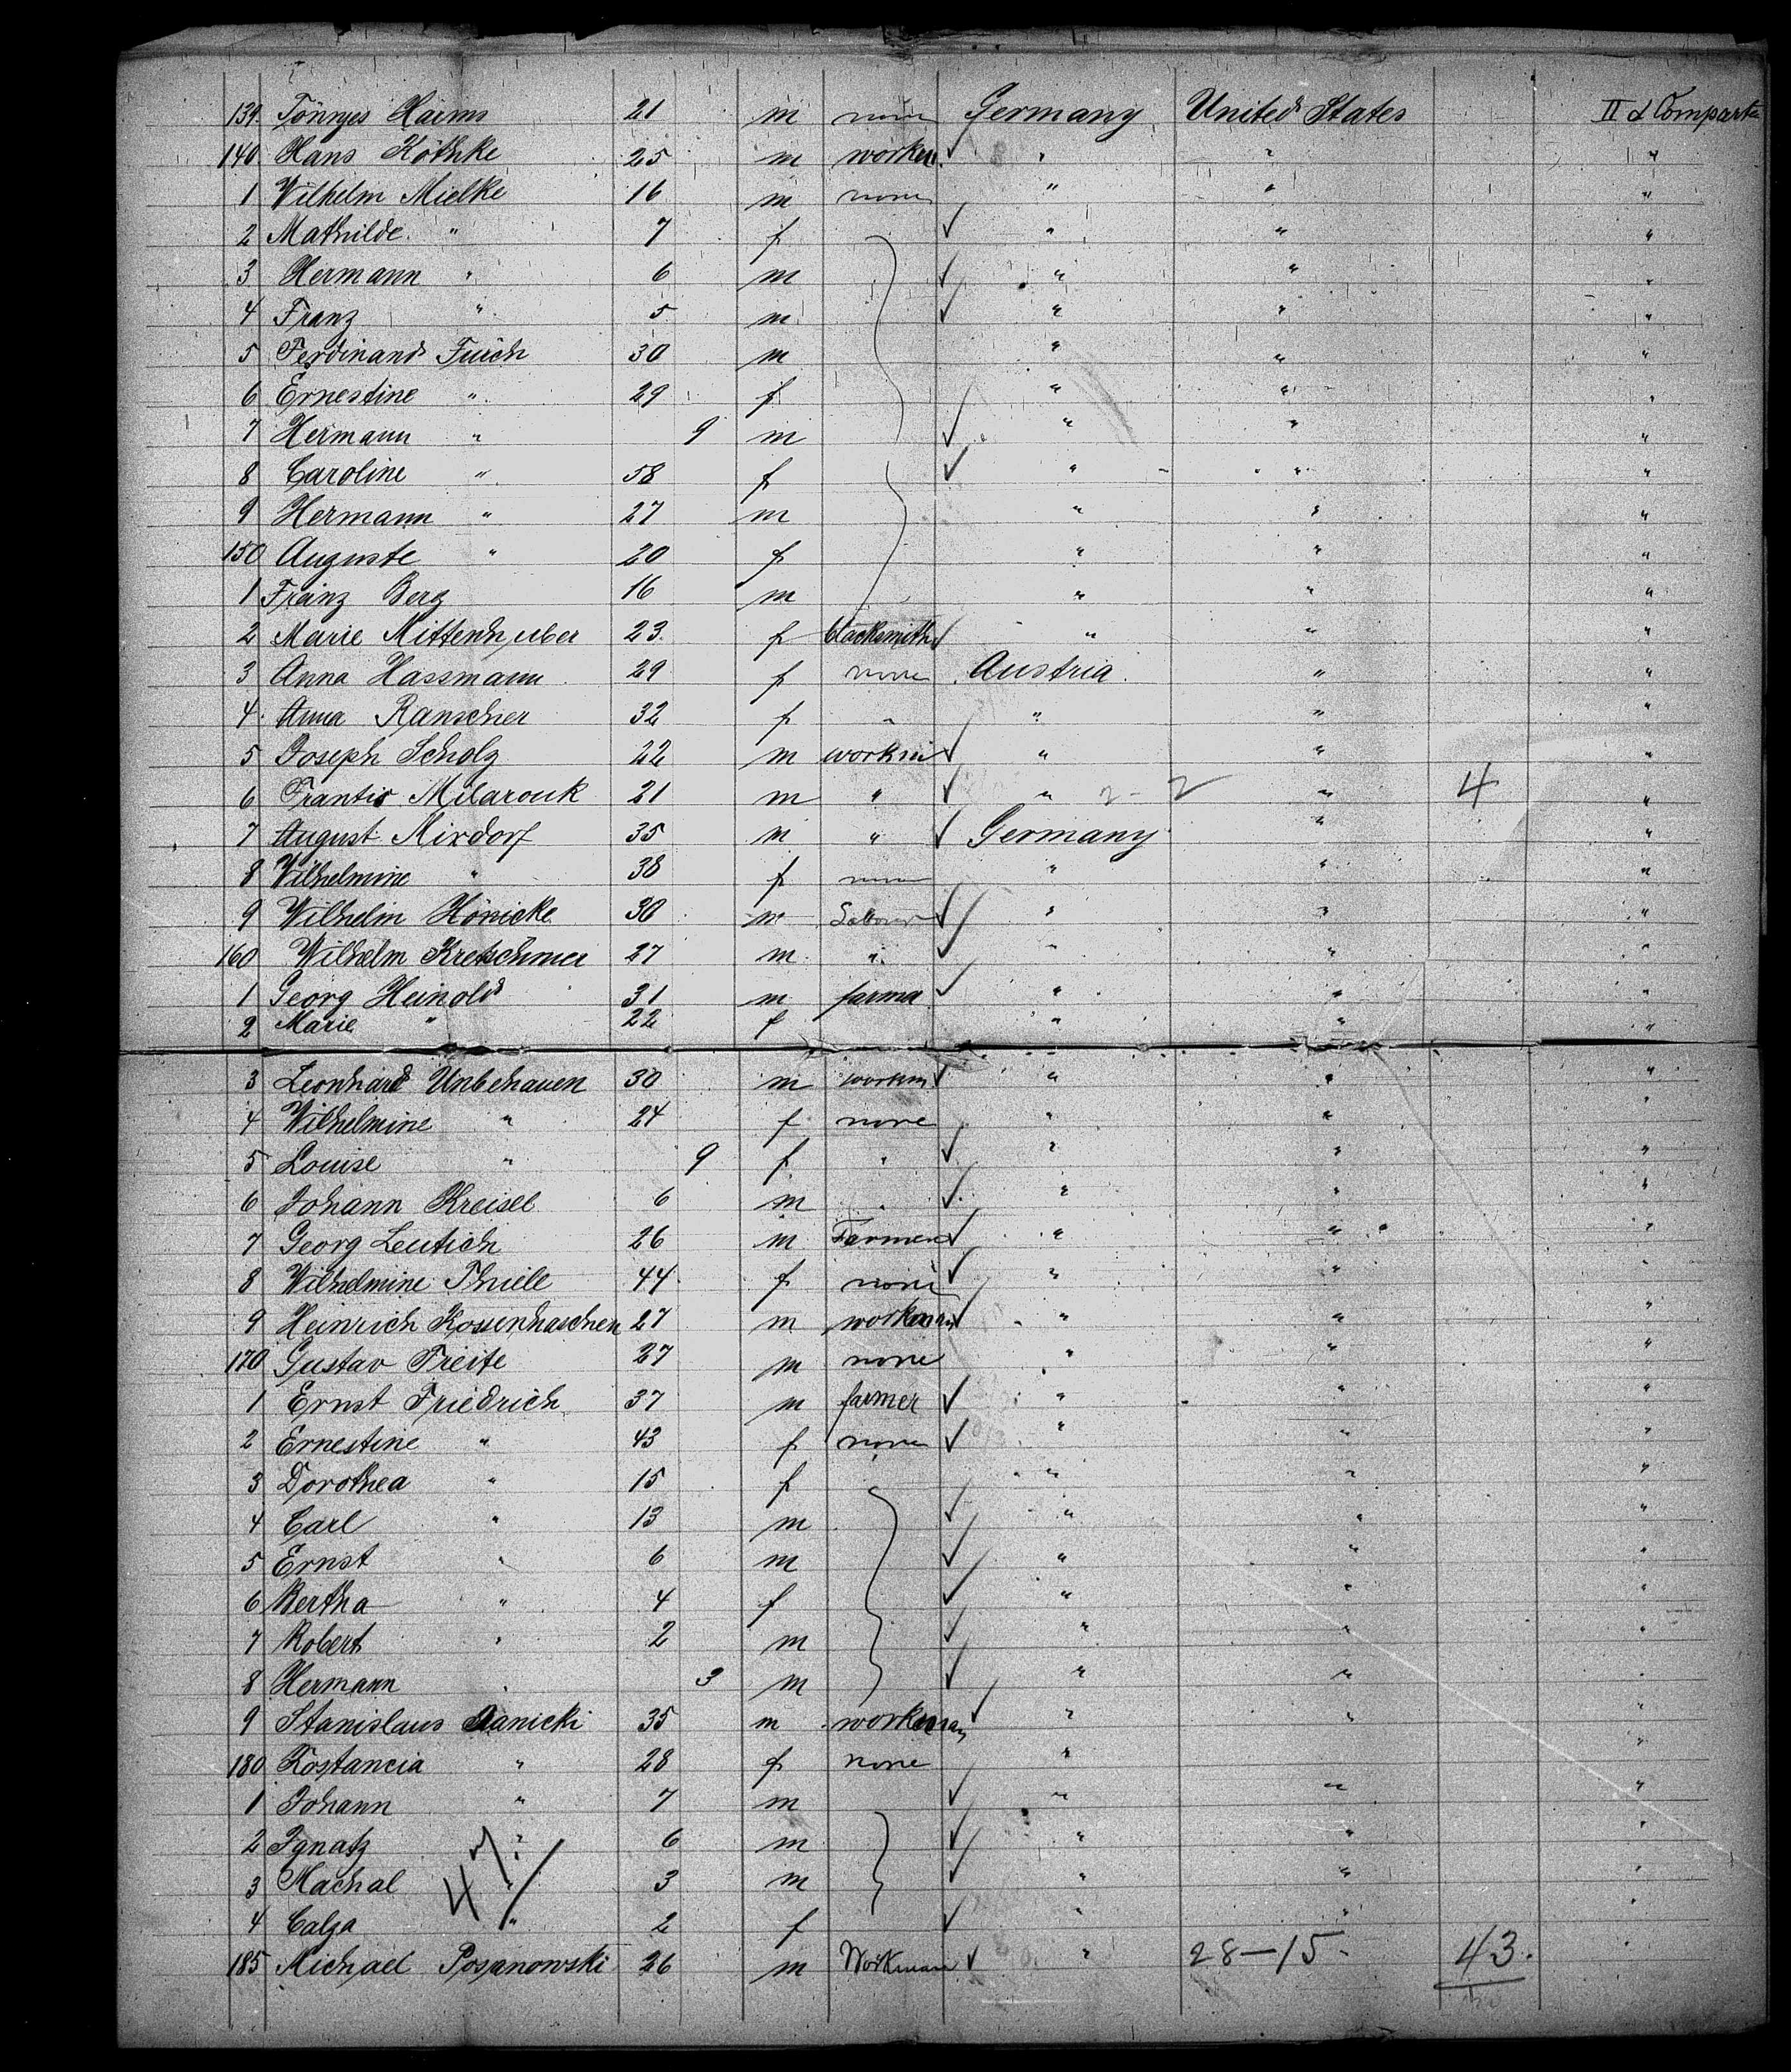 139. Tönnjes Harms 21 m none Germany United States II d Compart
140 Hans Köthke 25 m workm. " " "
1 Wilhelm Mielke 16 m none " " "
2 Mathilde " 7 f " " "
3 Hermann " 6 m " " "
4 Franz " 5 m " " "
5 Ferdinand Furch 30 m " " "
6 Ernestine " 29 f " " "
7 Hermann " 9 m " " "
8 Caroline " 58 f " " "
9 Hermann " 27 m " " "
150 Auguste " 20 f " " "
1 Franz Berg 16 m " " "
2 Marie 23 f blacksmith " " "
3 Anna Hassmann 29 f none Austria " "
4 Anna Ranscher 32 f " " " "
5 Joseph Scholz 22 m workm " " "
6 Frantis Milarouk 21 m " " 2-2 " 4 "
7 August Mixdorf 35 m " Germany " "
8 Wilhelmine " 38 f none " " "
9 Wilhelm Hönicke 30 m Labour " " "
160 Wilhelm Kretschmer 27 m " " " "
1 Georg Heinold 31 m farmer " " "
2 Marie " 22 f " " "
3 Leonhard Unbehauen 30 m workm " " "
4 Wilhelmine " 24 f none " " "
5 Louise " 9 f " " " "
6 Johann Kreisel 6 m " " " "
7 Georg Leutsch 26 m Farmer " " "
8 Wilhelmine Thiele 44 f none " " "
9 Heinrich Kossenhaschen 27 m workman " " "
170 Gustav Freite 27 m none " " "
1 Ernst Friedrich 37 m farmer " " "
2 Ernestine " 43 f none " " "
3 Dorothea " 15 f " " "
4 Carl " 13 m " " "
5 Ernst " 6 m " " "
6 Bertha " 4 f " " "
7 Robert " 2 m " " "
8 Hermann " 3 m " " "
9 Stanislaus Janicki 35 m workman " " "
180 Kostancia " 28 f none " " "
1 Johann " 7 m " " "
2 Ignatz " 6 m " " "
3 Machal " 3 m " " "
4 " 2 f " " "
185 Michael Posanowski 26 m Workman " 28-15- 43. "